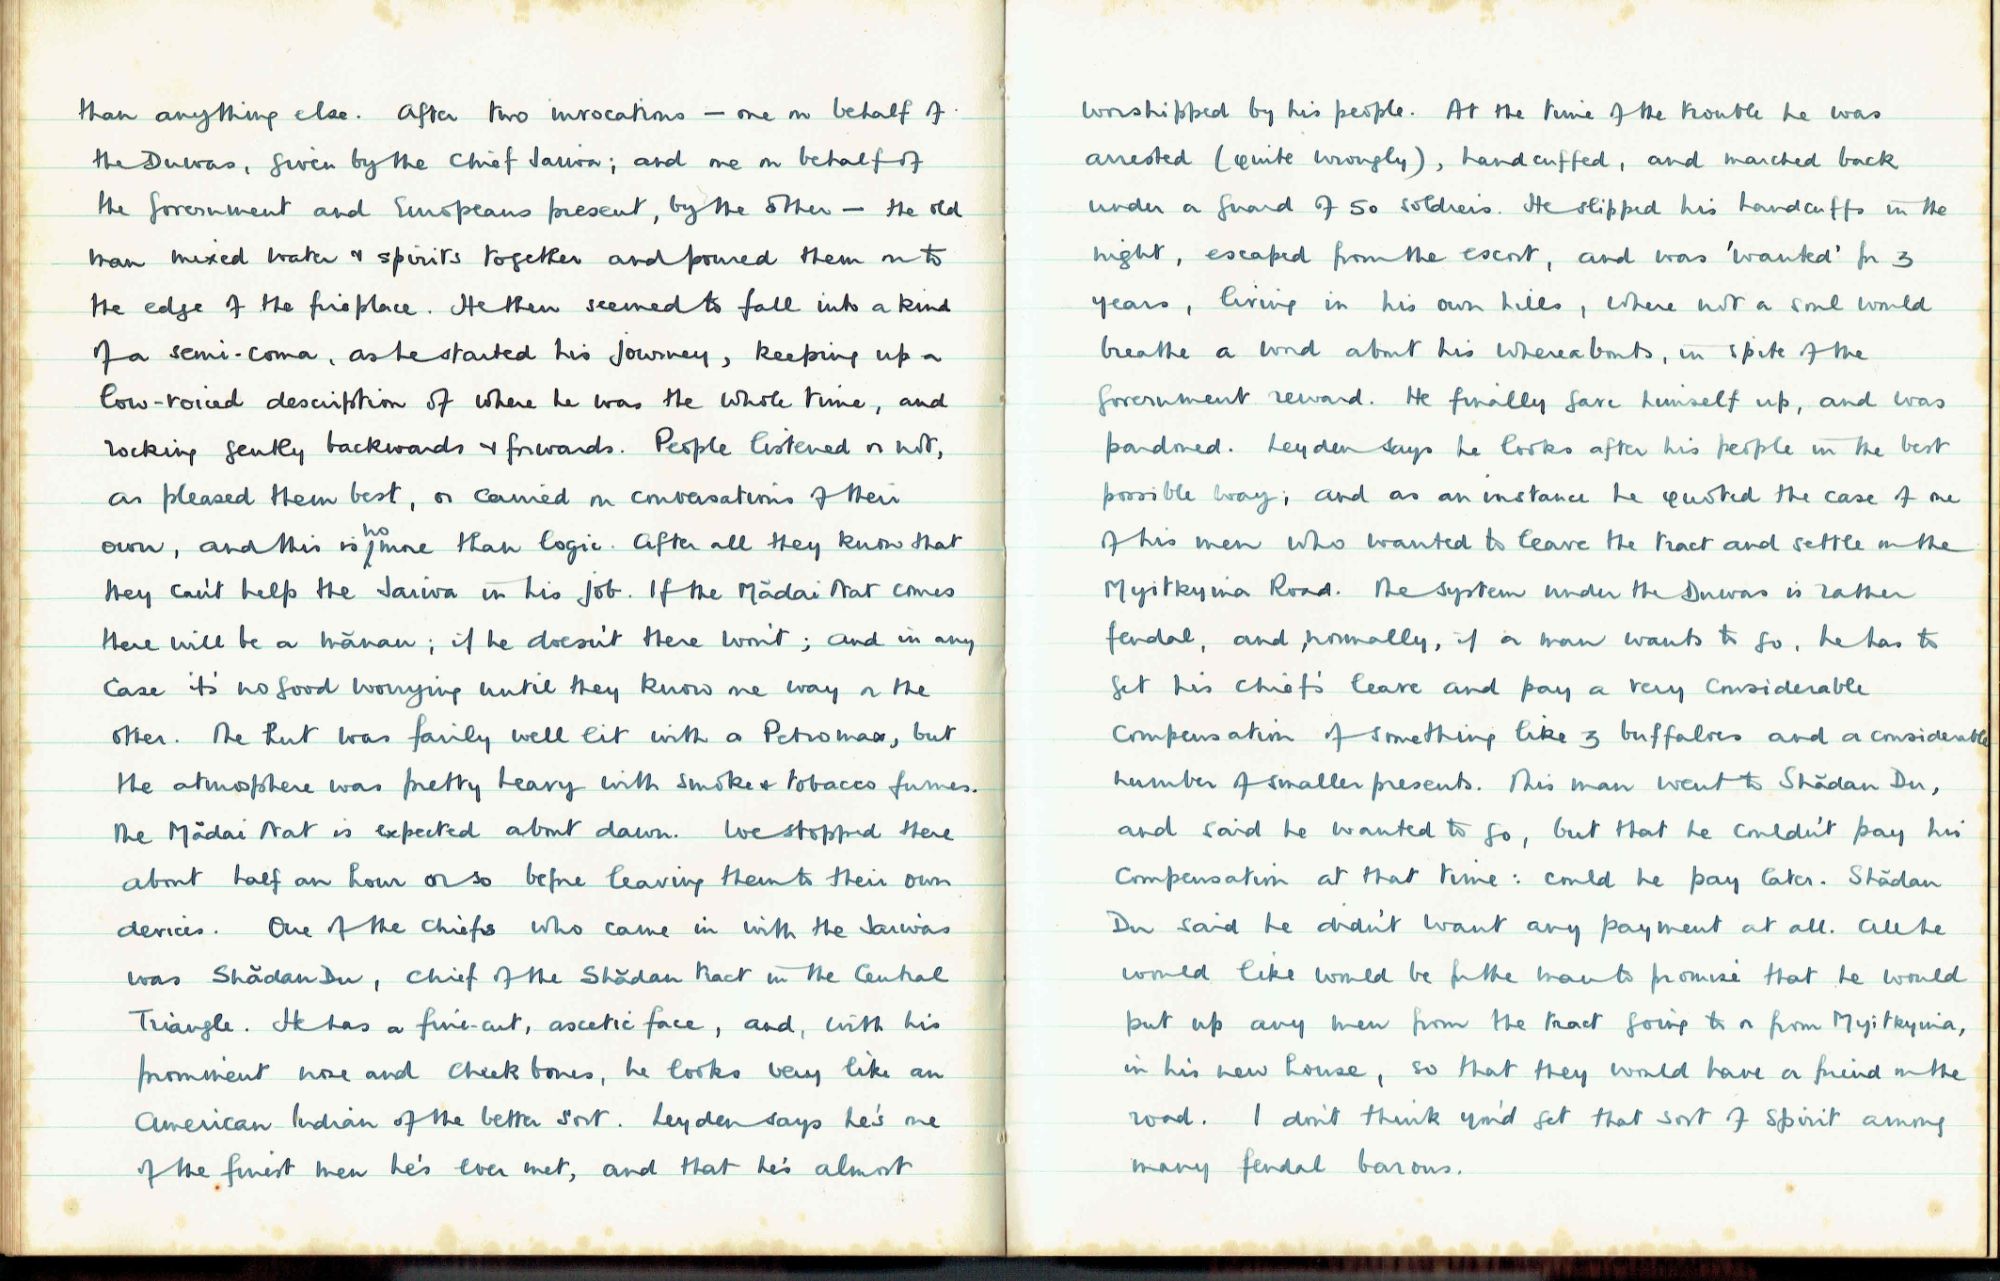 than anything else. After two invocations — one on behalf of
the Duwas, given by the Chief Jaiwa; and one on behalf of
the Government and Europeans present, by the other — the old
man mixed water & spirits together and poured them on to
the edge of the fireplace. He then seemed to fall into a kind
of a semi-coma, as he started his journey, keeping up a
low-voiced description of where he was the whole time, and
rocking gently backwards & forwards. People listened or not,
as pleased them best, or carried on conversations of their
own, and this is no more than logic. After all they know that
they can't help the Jaiwa in his job. If the Mădai Nat comes
there will be a mănau; if he doesn't there won't; and in any
case it's no good worrying until they know one way or the
other. The hut was fairly well lit with a Petromax, but
the atmosphere was pretty heavy with smoke & tobacco fumes.
The Mădai Nat is expected about dawn. We stopped there
about half an hour or so before leaving them to their own
devices. One of the chiefs who came in with the Jaiwas
was Shădan Du, chief of the Shădan tract in the Central
Triangle. He has a fine-cut, ascetic face, and, with his
prominent nose and cheek bones, he looks very like an
American Indian of the better sort. Leyden says he's one
of the finest men he's ever met, and that he's almost
worshipped by his people. At the time of the trouble he was
arrested (quite wrongly), handcuffed, and marched back
under a guard of 50 soldiers. He slipped his handcuffs in the
night, escaped from the escort, and was 'wanted' for 3
years, living in his own hills, where not a soul would
breathe a word about his whereabouts, in spite of the
Government reward. He finally gave himself up, and was
pardoned. Leyden says he looks after his people in the best
possible way; and as an instance he quoted the case of one
of his men who wanted to leave the tract and settle on the
Myitkyina Road. The system under the Duwas is rather
feudal, and, normally, if a man wants to go, he has to
get his chief's leave and pay a very considerable
compensation of something like 3 buffaloes and a considerable
number of smaller presents. This man went to Shădan Du,
and said he wanted to go, but that he couldn't pay his
compensation at that time: could he pay later. Shădan
Du said he didn't want any payment at all. All he
would like would be for the man to promise that he would
put up any men from the tract going to or from Myitkyina,
in his new house, so that they would have a friend on the
road. I don't think you'd get that sort of spirit among
many feudal barons.